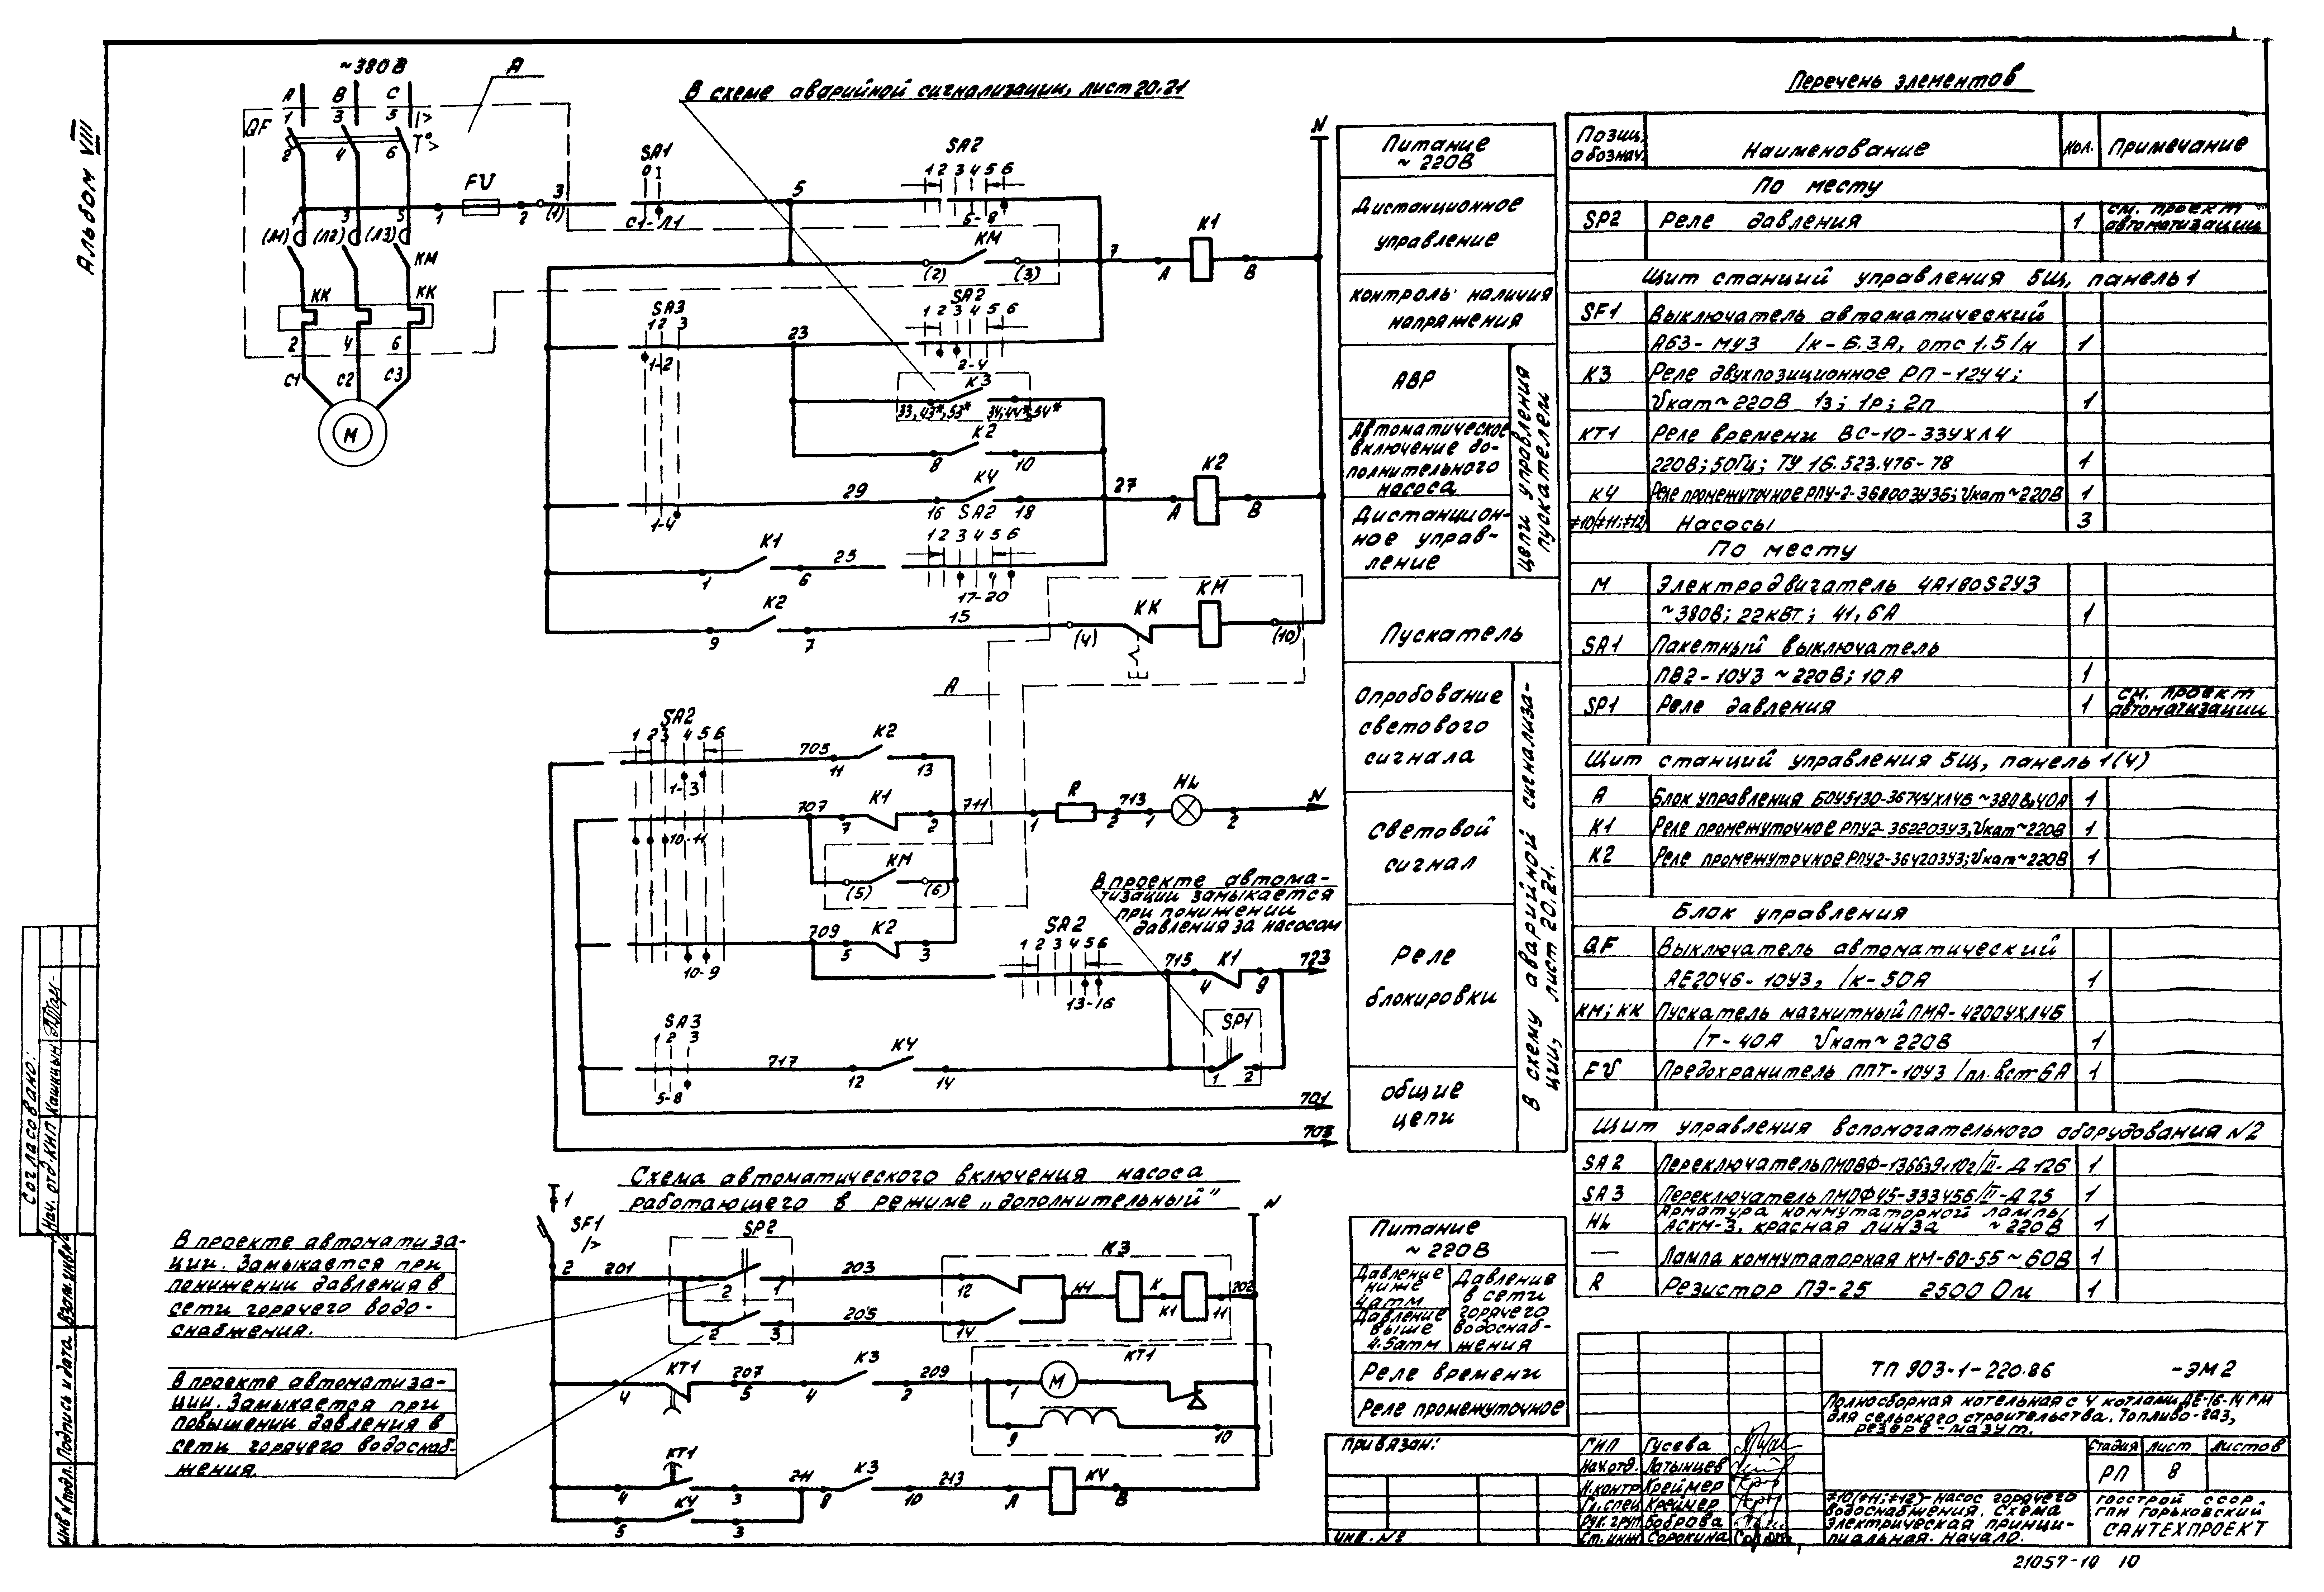 Альбом VIII
~380В
А
В схеме аварийной сигнализации, лист 20.21
А В С
1 3 5 I>
QF
2 4 6 T°>
FU
1 2 3 (1)
1 3 5
(Л1) (Л2) (Л3)
КМ
КК КК
2 4 6
С1 С2 С3
М
SA1
0 1
С1-Л1
5
SA2
1 2 3 4 5 6
5-8
КМ
(2) (3)
7
К1
А В
N
SA3
1 2 3
1-2
23
SA2
1 2 3 4 5 6
2-4
К3
33,43*,53* 34;44*,54*
К2
8 10
29
К4
16 18
1-4
27
К2
А В
SA2
1 2 3 4 5 6
17-20
К1
1 6
25
К2
9 7
15
(4)
КК
КМ
(10)
А
SA2
1 2 3 4 5 6
1-3
705
К2
11 13
707
К1
7 2
10-11
711
1
R
2
713
1
HL
2
N
КМ
(5) (6)
709
К2
5 3
10-9
SA2
1 2 3 4 5 6
13-16
В проекте автома-
тизации замыкается
при понижении
давления за насосом
715
К1
4 9
723
SP1
1 2
SA3
1 2 3
5-8
717
К4
12 14
701
703
Питание
~ 220В
Дистанционное
управление
Контроль наличия
напряжения
АВР
Автоматическое
включение до-
полнительного
насоса
Дистанцион-
ное управ-
ление
Цепи управления
пускателем
Пускатель
Опробование
светового
сигнала
Световой
сигнал
Реле
блокировки
Общие
цепи
В схему аварийной сигнализа-
ции, лист 20.21.
Схема автоматического включения насоса
работающего в режиме „дополнительный"
1
SF1
I>
2
201
SP2
2 1
203
12
К3
Н1
К
К1
11
202
N
2 3
205
14
КТ1
4 5
207
К3
4 2
209
КТ1
1
М
9 10
КТ1
4 3
211
К3
8 10
213
А
К4
В
К4
5 3
В проекте автоматиза-
ции. Замыкается при
понижении давления в
сети горячего водо-
снабжения.
В проекте автоматиза-
ции. Замыкается при
повышении давления в
сети горячего водоснаб-
жения.
Питание
~ 220В
Давление
ниже
4атм
Давление
выше
4.5атм
Давление
в сети
горячего
водоснаб-
жения
Реле времени
Реле промежуточное
Перечень элементов
Позиц. обознач. Наименование Кол. Примечание
По месту
SP2 Реле давления 1 см. проект автоматизации
Щит станций управления 5Щ, панель 1
SF1 Выключатель автоматический
А63-МУ3 Iк-6.3А, отс 1.5 Iн 1
К3 Реле двухпозиционное РП-12У4;
Uкат~220В 1з; 1р; 2п 1
КТ1 Реле времени ВС-10-33УХЛ4
220В; 50Гц; ТУ 16.523.476-78 1
К4 Реле промежуточное РПУ-2-36800У3Б; Uкат~220В 1
#10(#11;#12) Насосы 3
По месту
М Электродвигатель 4А180S2У3
~380В; 22кВт; 41,6А 1
SA1 Пакетный выключатель
ПВ2-10У3 ~220В; 10А 1
SP1 Реле давления 1 см. проект автоматизации
Щит станций управления 5Щ, панель 1(4)
А Блок управления БОУ5130-3674УХЛ4Б ~380В,40А 1
К1 Реле промежуточное РПУ2-36220У3, Uкат~220В 1
К2 Реле промежуточное РПУ2-36420У3; Uкат~220В 1
Блок управления
QF Выключатель автоматический
АЕ2046-10У3, Iк-50А 1
КМ; КК Пускатель магнитный ПМА-4200УХЛ4Б
IТ-40А Uкат~220В 1
FU Предохранитель ППТ-10У3 Iпл.вст-6А 1
Щит управления вспомогательного оборудования N2
SA2 Переключатель ПМОВФ-136639.102/II-Д126 1
SA3 Переключатель ПМОФ45-333456/II-Д25 1
HL Арматура коммутаторной лампы
АСКМ-3, красная линза ~220В 1
— Лампа коммутаторная КМ-60-55 ~60В 1
R Резистор ПЭ-25 2500 Ом 1
Привязан:
инв. №
ТП 903-1-220.86 -ЭМ2
Полносборная котельная с 4 котлами ДЕ-16-14ГМ
для сельского строительства. Топливо-газ,
резерв-мазут.
Стадия Лист Листов
РП 8
ГИП Гусева
Нач.отд. Латынцев
Н.контр Креймер
Гл.спец Креймер
Рук.груп. Боброва
Ст.инж Сорокина
#10(#11;#12)-Насос горячего
водоснабжения. Схема
электрическая принци-
пиальная. Начало.
Госстрой СССР
ГПИ Горьковский
САНТЕХПРОЕКТ
21057-10 10
Согласовано:
Нач. отд. КИП Кашицын
Взам. инв. №
Подпись и дата
Инв № подл.